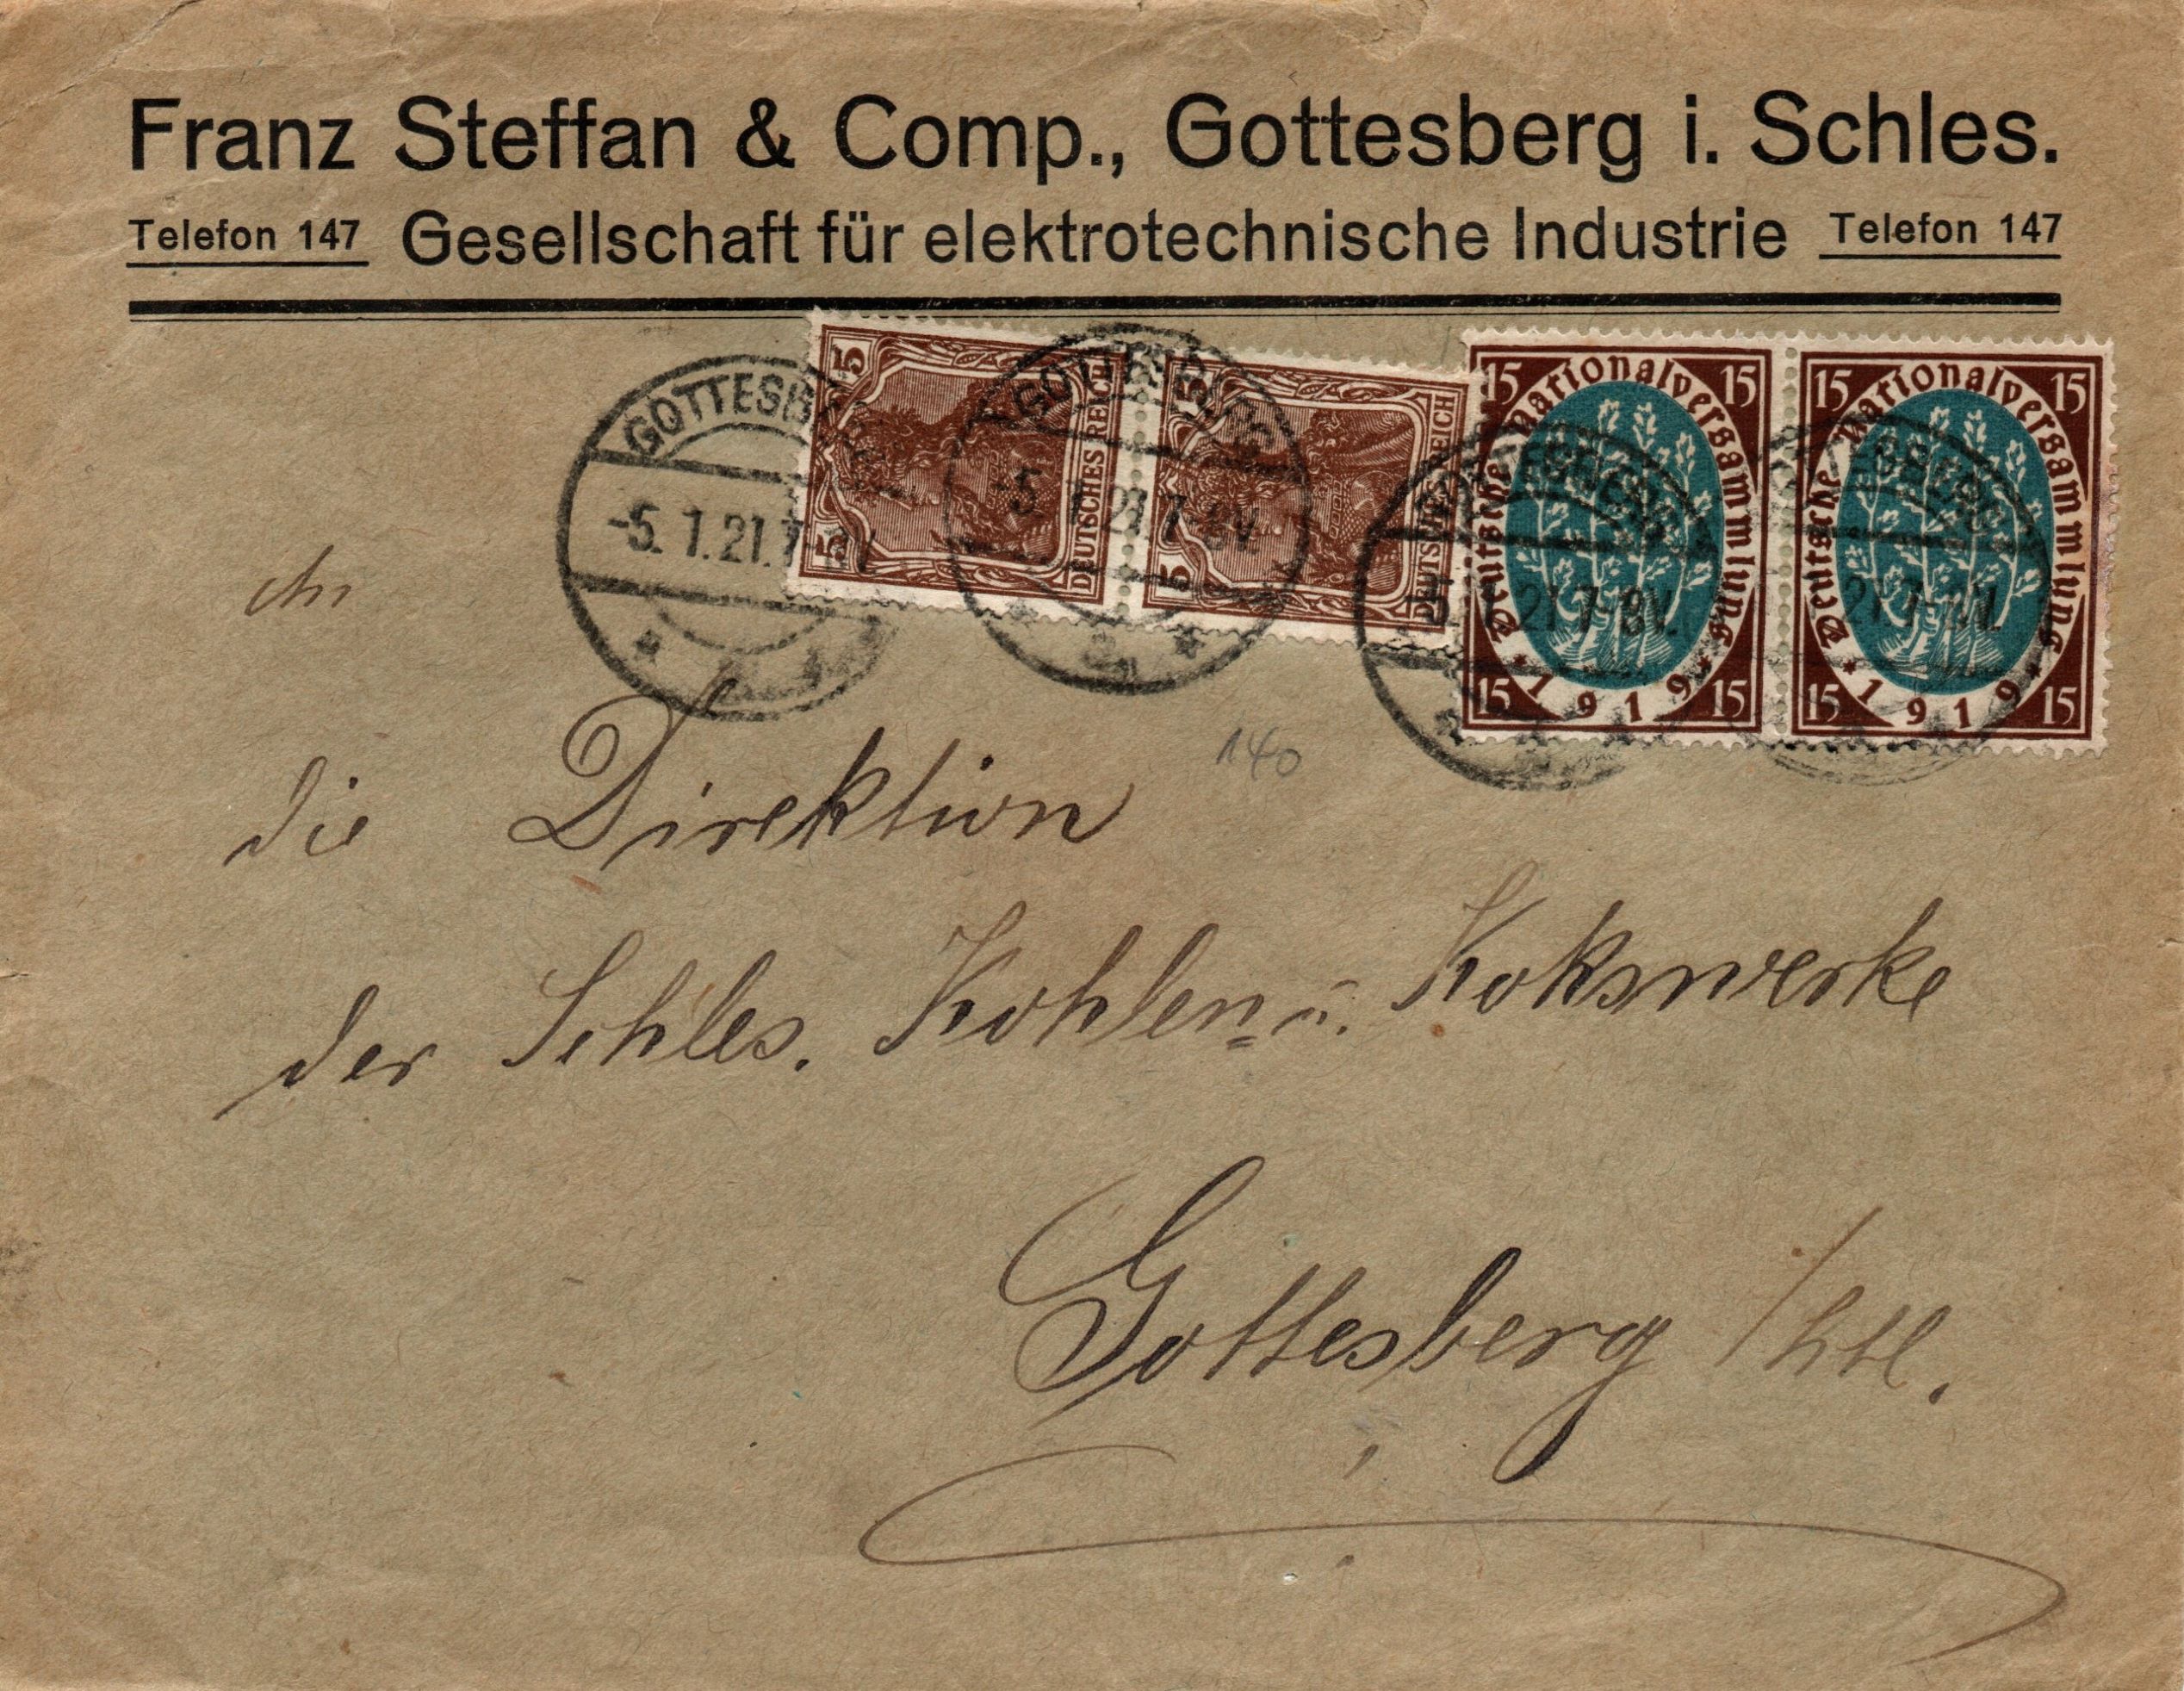 Franz Steffan & Comp., Gottesberg i. Schles.
Telefon 147 Gesellschaft für elektrotechnische Industrie Telefon 147
GOTTESB
-5.1.21.7-8V
GOTTESBERG
-5.1.21.7-8V.
5
5
DEUTSCHES REICH
5
5
DEUTSCHES REICH
15 15
Deutsche Nationalversammlung
* 1919 *
15 15
15 15
Deutsche Nationalversammlung
* 1919 *
15 15
An
140
die Direktion
der Schles. Kohlen= u. Kokswerke
Gottesberg